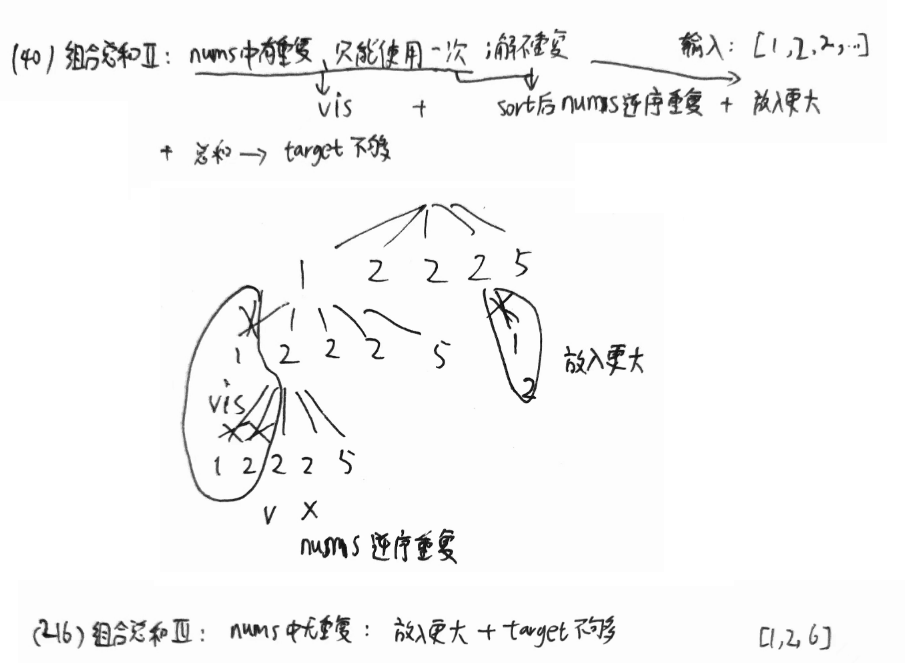 (40) 组合总和II: nums中有重复 只能使用一次 ;解不重复 输入: [1,2,2,...]
vis + sort后nums逆序重复 + 放入更大
+ 总和→target不够
1 2 2 2 5
1 2 2 2 5 1 放入更大
vis 2
1 2 2 2 5
v x
nums逆序重复
(216) 组合总和III: nums中无重复: 放入更大+target不够 [1,2,6]